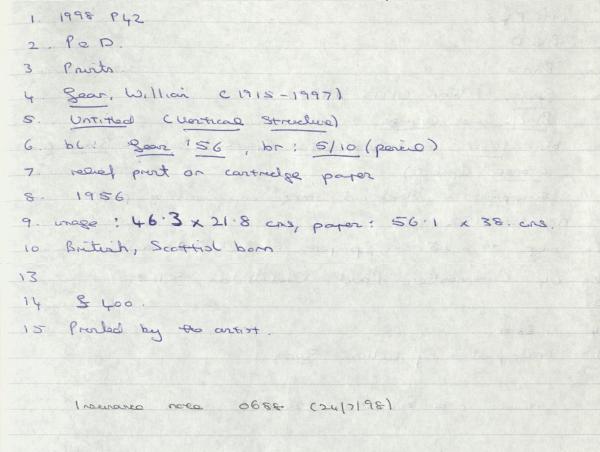 1. 1998 P42
2. P & D.
3 Prints
4 Gear, William (1915-1997)
5. Untitled (Vertical Structure)
6. bl: Gear '56, br: 5/10 (pencil)
7. relief print on cartridge paper
8. 1956
9. image: 46.3 x 21.8 cms, paper: 56.1 x 38. cms.
10 British, Scottish born
13
14 £400.
15 Printed by the artist.
Insurance note 0688 (24/7/98)